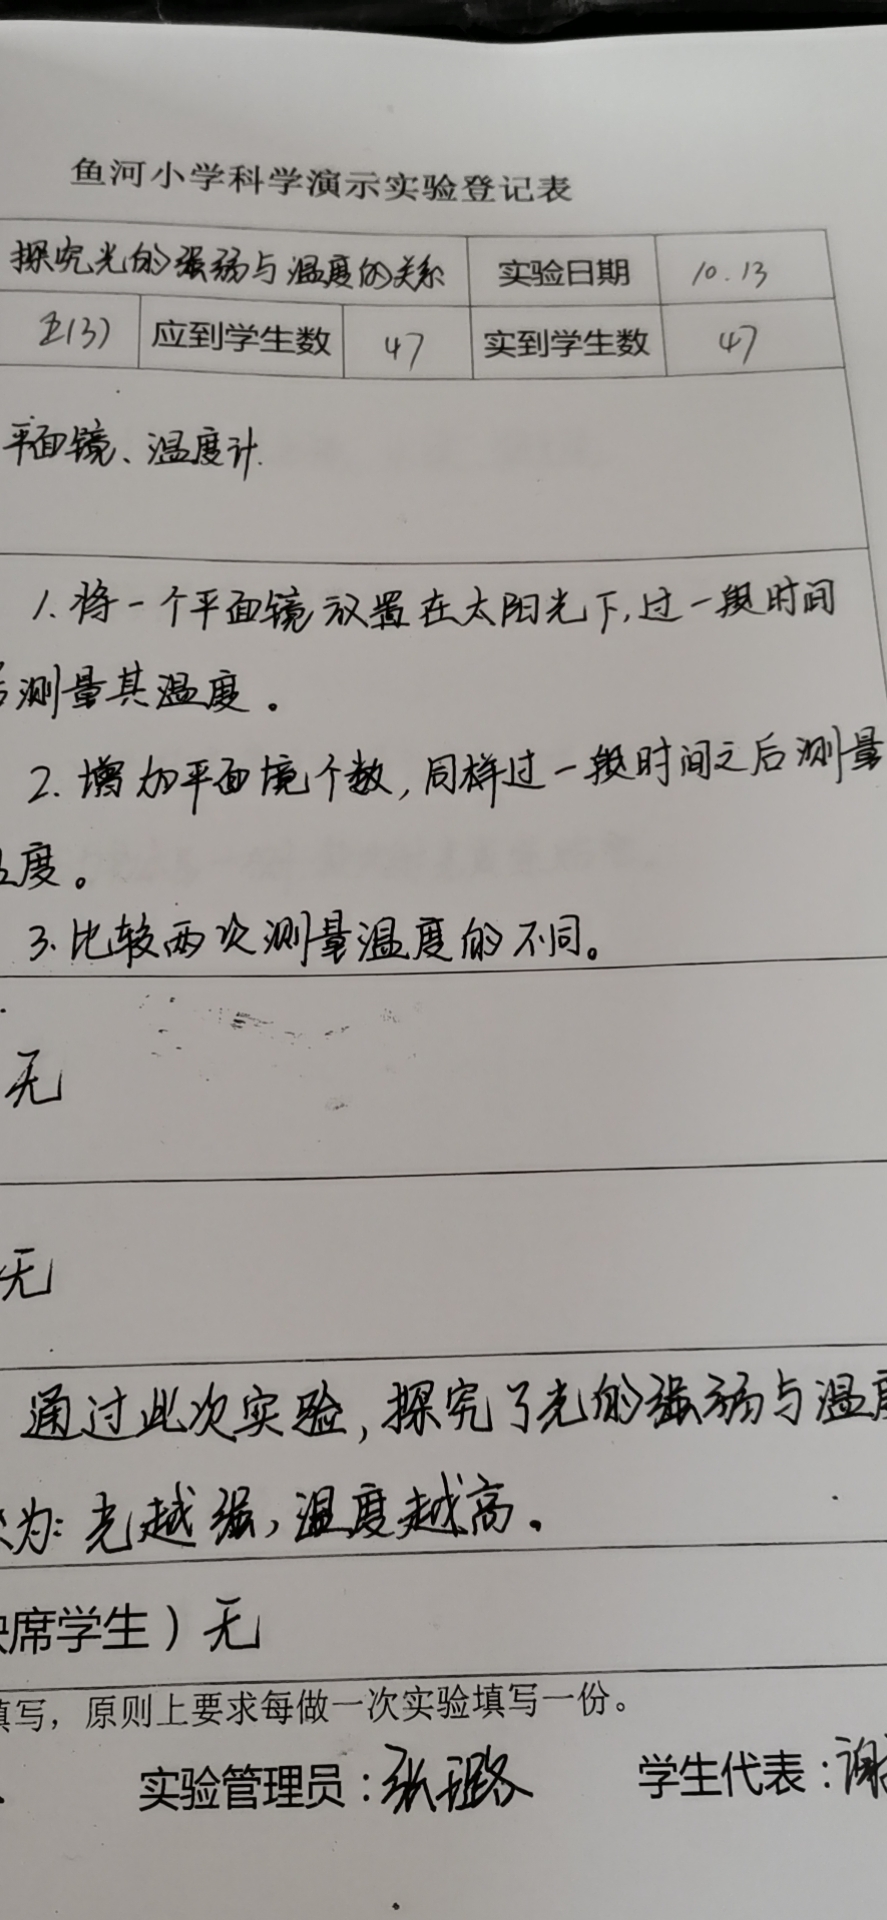 鱼河小学科学演示实验登记表
探究光的强弱与温度的关系 实验日期 10.13
五(3) 应到学生数 47 实到学生数 47
平面镜、温度计.
1. 将一个平面镜放置在太阳光下,过一段时间
后测量其温度。
2. 增加平面境个数,同样过一段时间之后测量
温度。
3. 比较两次测量温度的不同。
无
无
通过此次实验,探究了光的强弱与温度
为:光越强,温度越高。
缺席学生)无
填写,原则上要求每做一次实验填写一份。
实验管理员:张璐 学生代表:谢